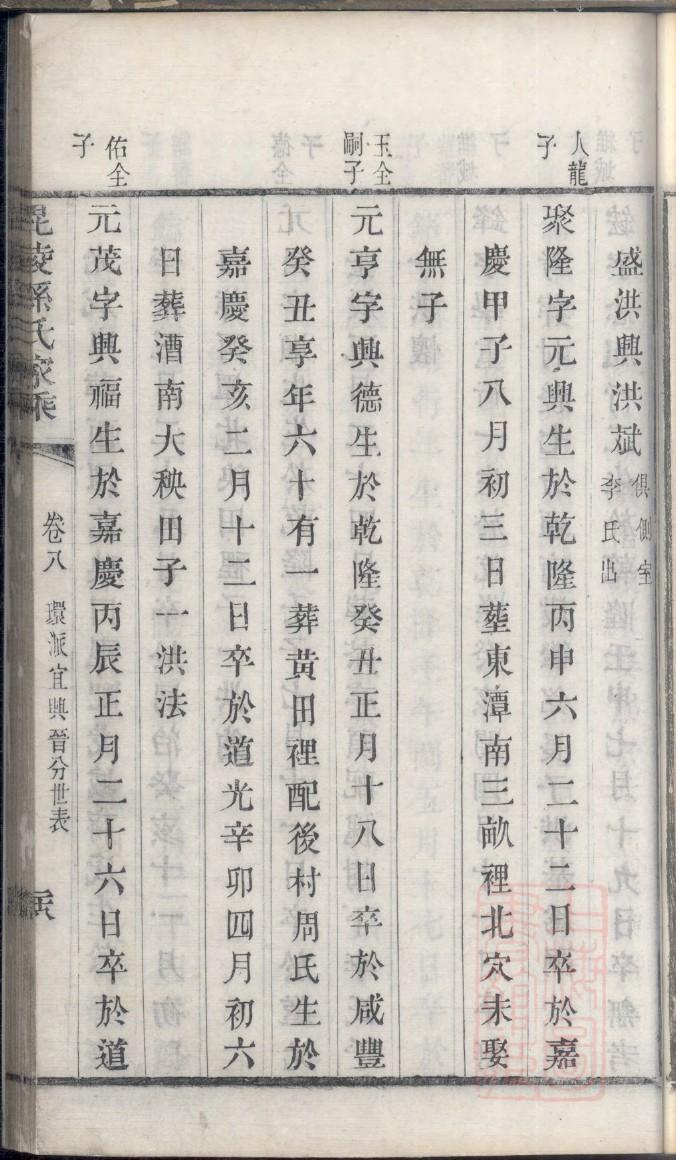 盛洪興洪斌俱側室
李氏出
人龍
子
聚隆字元興生於乾隆丙申六月二十二日卒於嘉
慶甲子八月初三日塟東潭南三畝裡北穴未娶
無子
玉全
嗣子
元亨字興德生於乾隆癸丑正月十八日卒於咸豐
癸丑享年六十有一葬黃田裡配後村周氏生於
嘉慶癸亥二月十二日卒於道光辛卯四月初六
日葬漕南大秧田子一洪法
佑全
子
元茂字興福生於嘉慶丙辰正月二十六日卒於道
毘陵孫氏家乘
卷八 環派宜興晉分世表